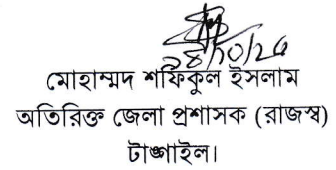 ২৪/১০/২৫
মোহাম্মদ শফিকুল ইসলাম
অতিরিক্ত জেলা প্রশাসক (রাজস্ব)
টাঙ্গাইল।